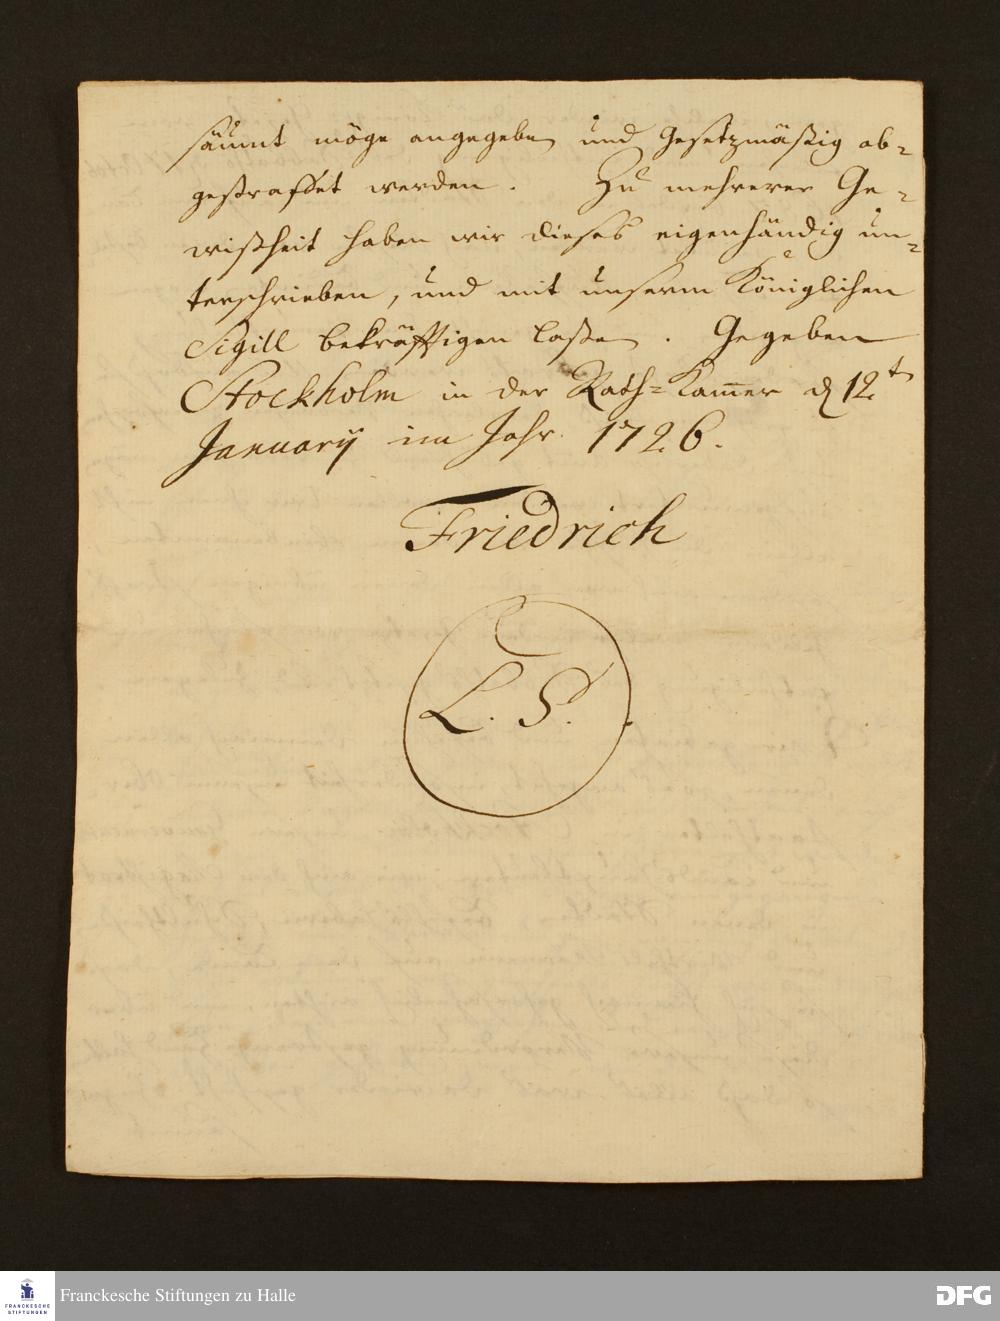 säumt möge angegeben und Gesetzmäßig ab-
gestraffet werden. Zu mehrerer Ge-
wißheit haben wir dieses eigenhändig un-
terschrieben, und mit unserm Königlichen
Sigill bekräfftigen laßen. Gegeben
Stockholm in der Rath-Kam̃er d 12t
January im Jahr 1726.
Friedrich
L. S.
FRANCKESCHE
STIFTUNGEN
Franckesche Stiftungen zu Halle
DFG